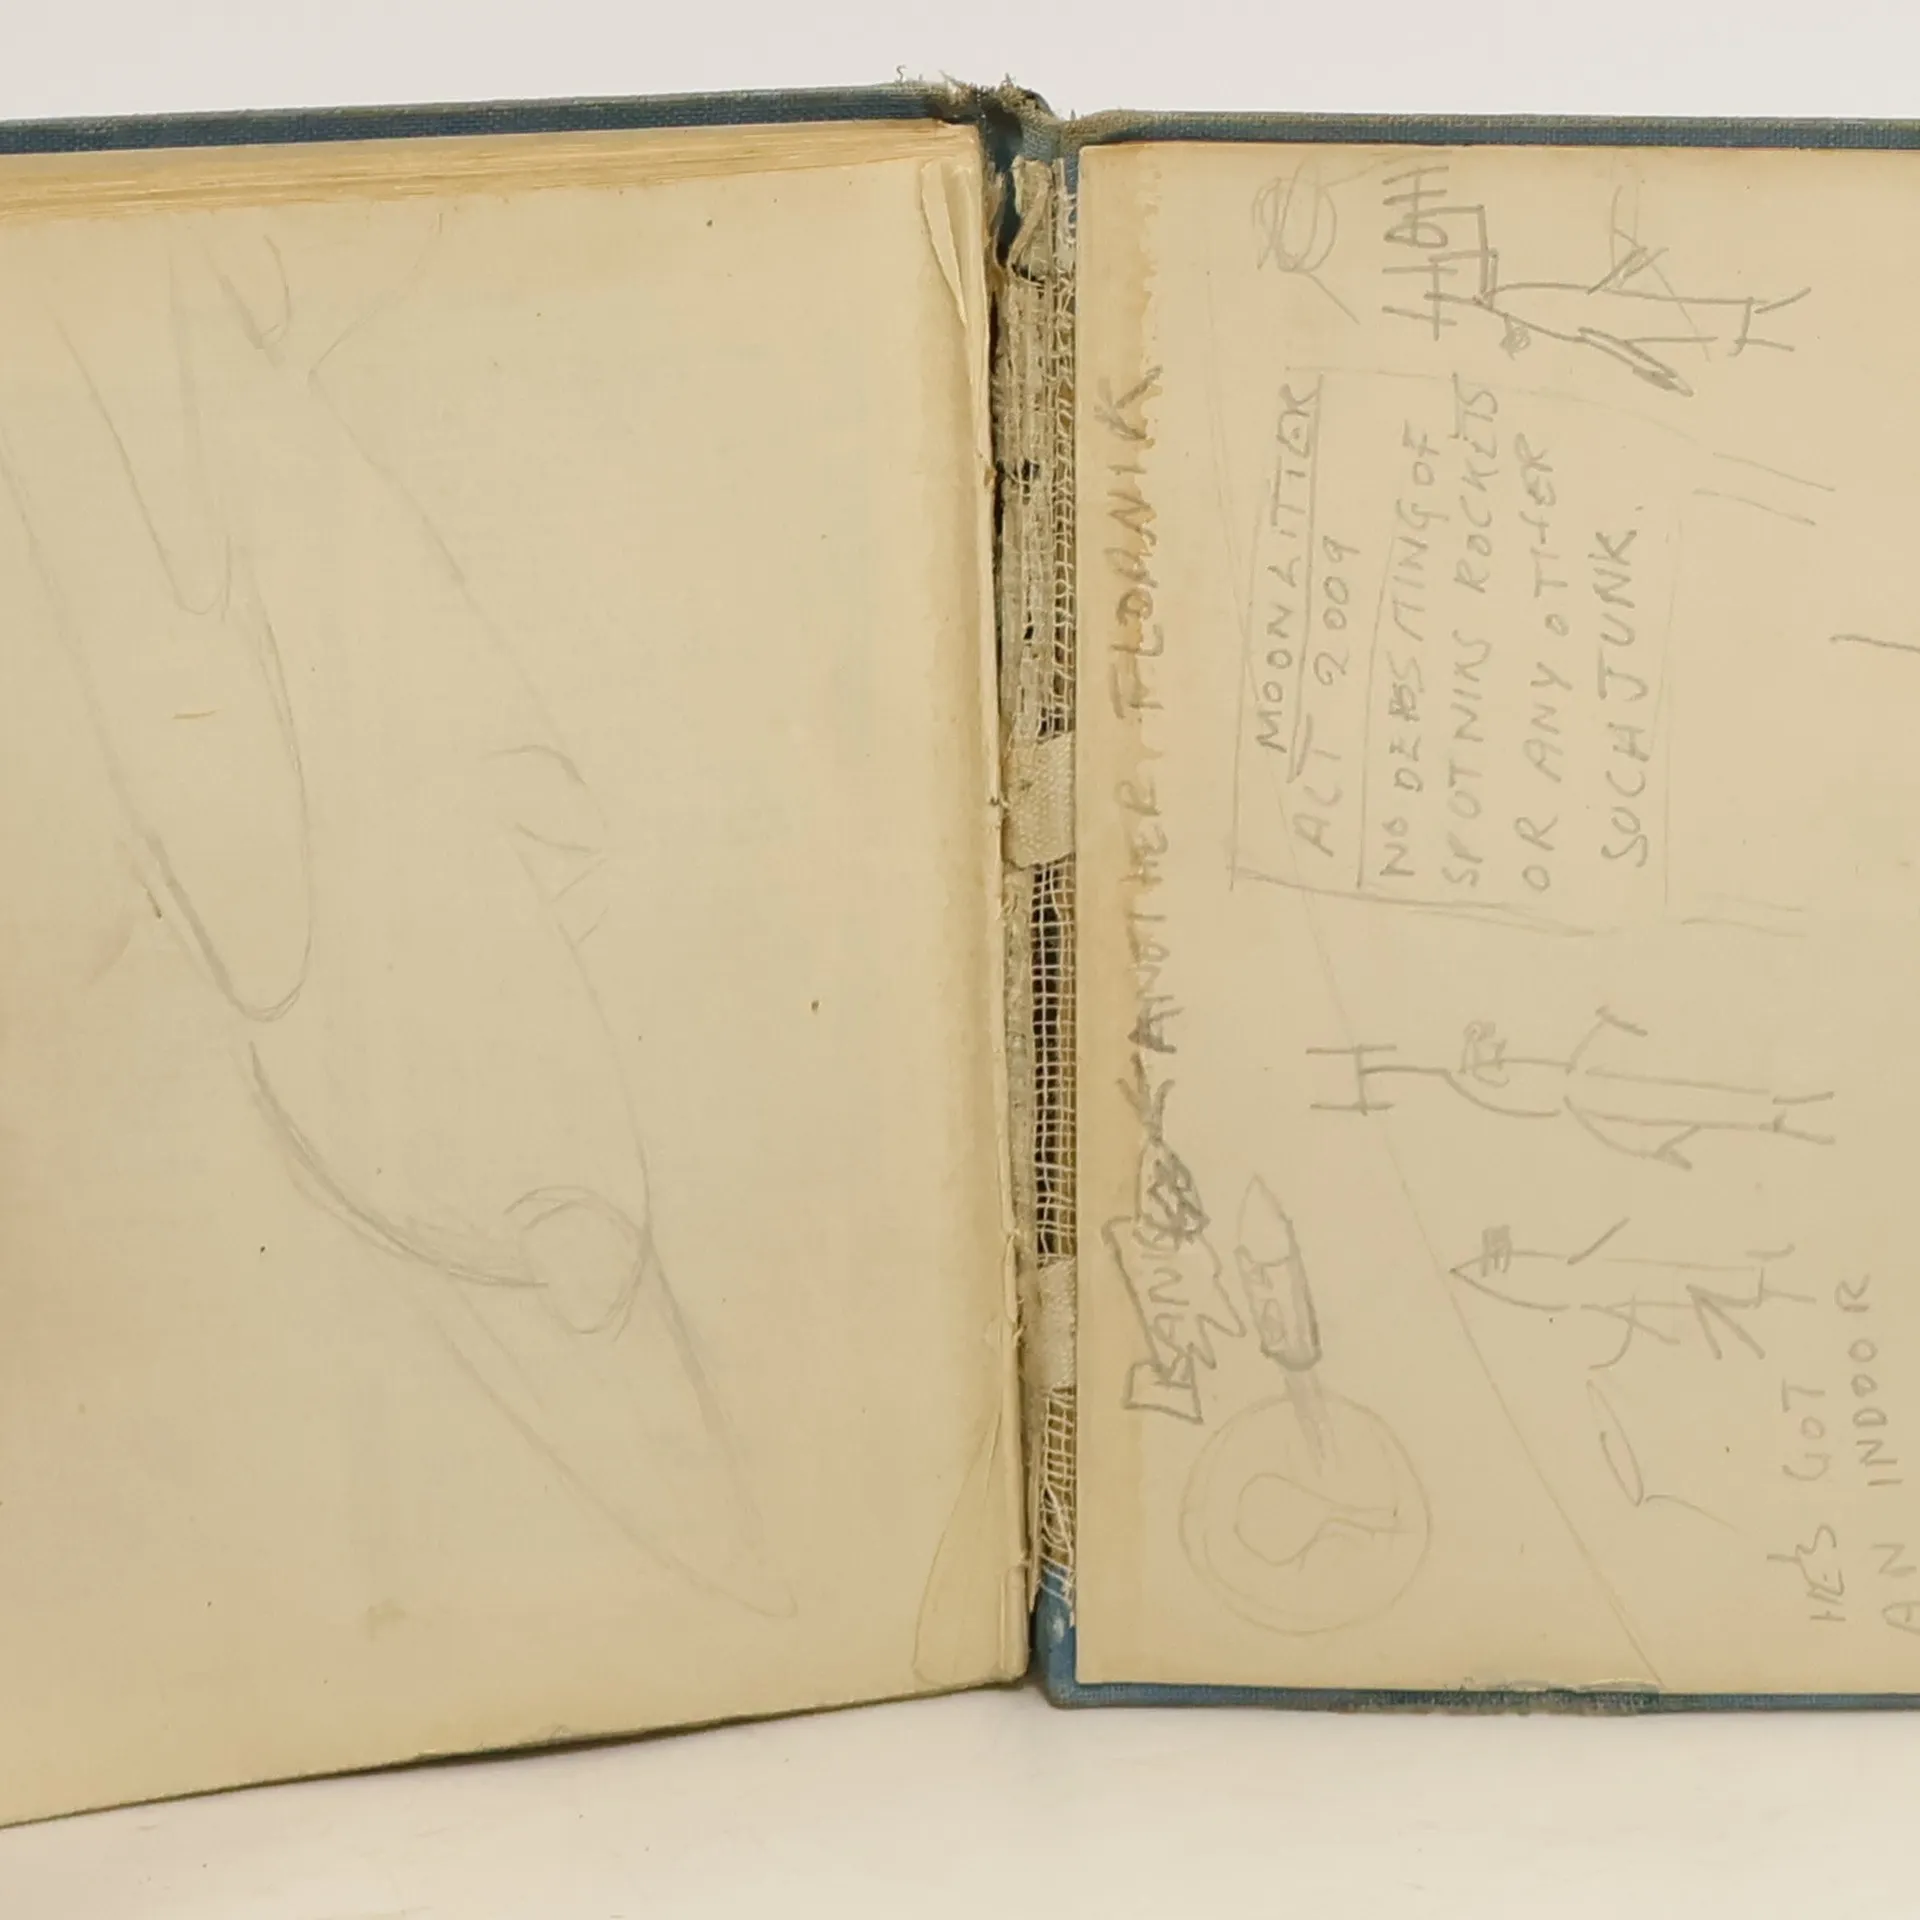 ANOTHER FLOANIK
BANG
MOON LITTER
ACT 2009
NO DEPSITING OF
SPOTNIKS ROCKETS
OR ANY OTHER
SUCH JUNK.
HE'S GOT
AN INDOOR